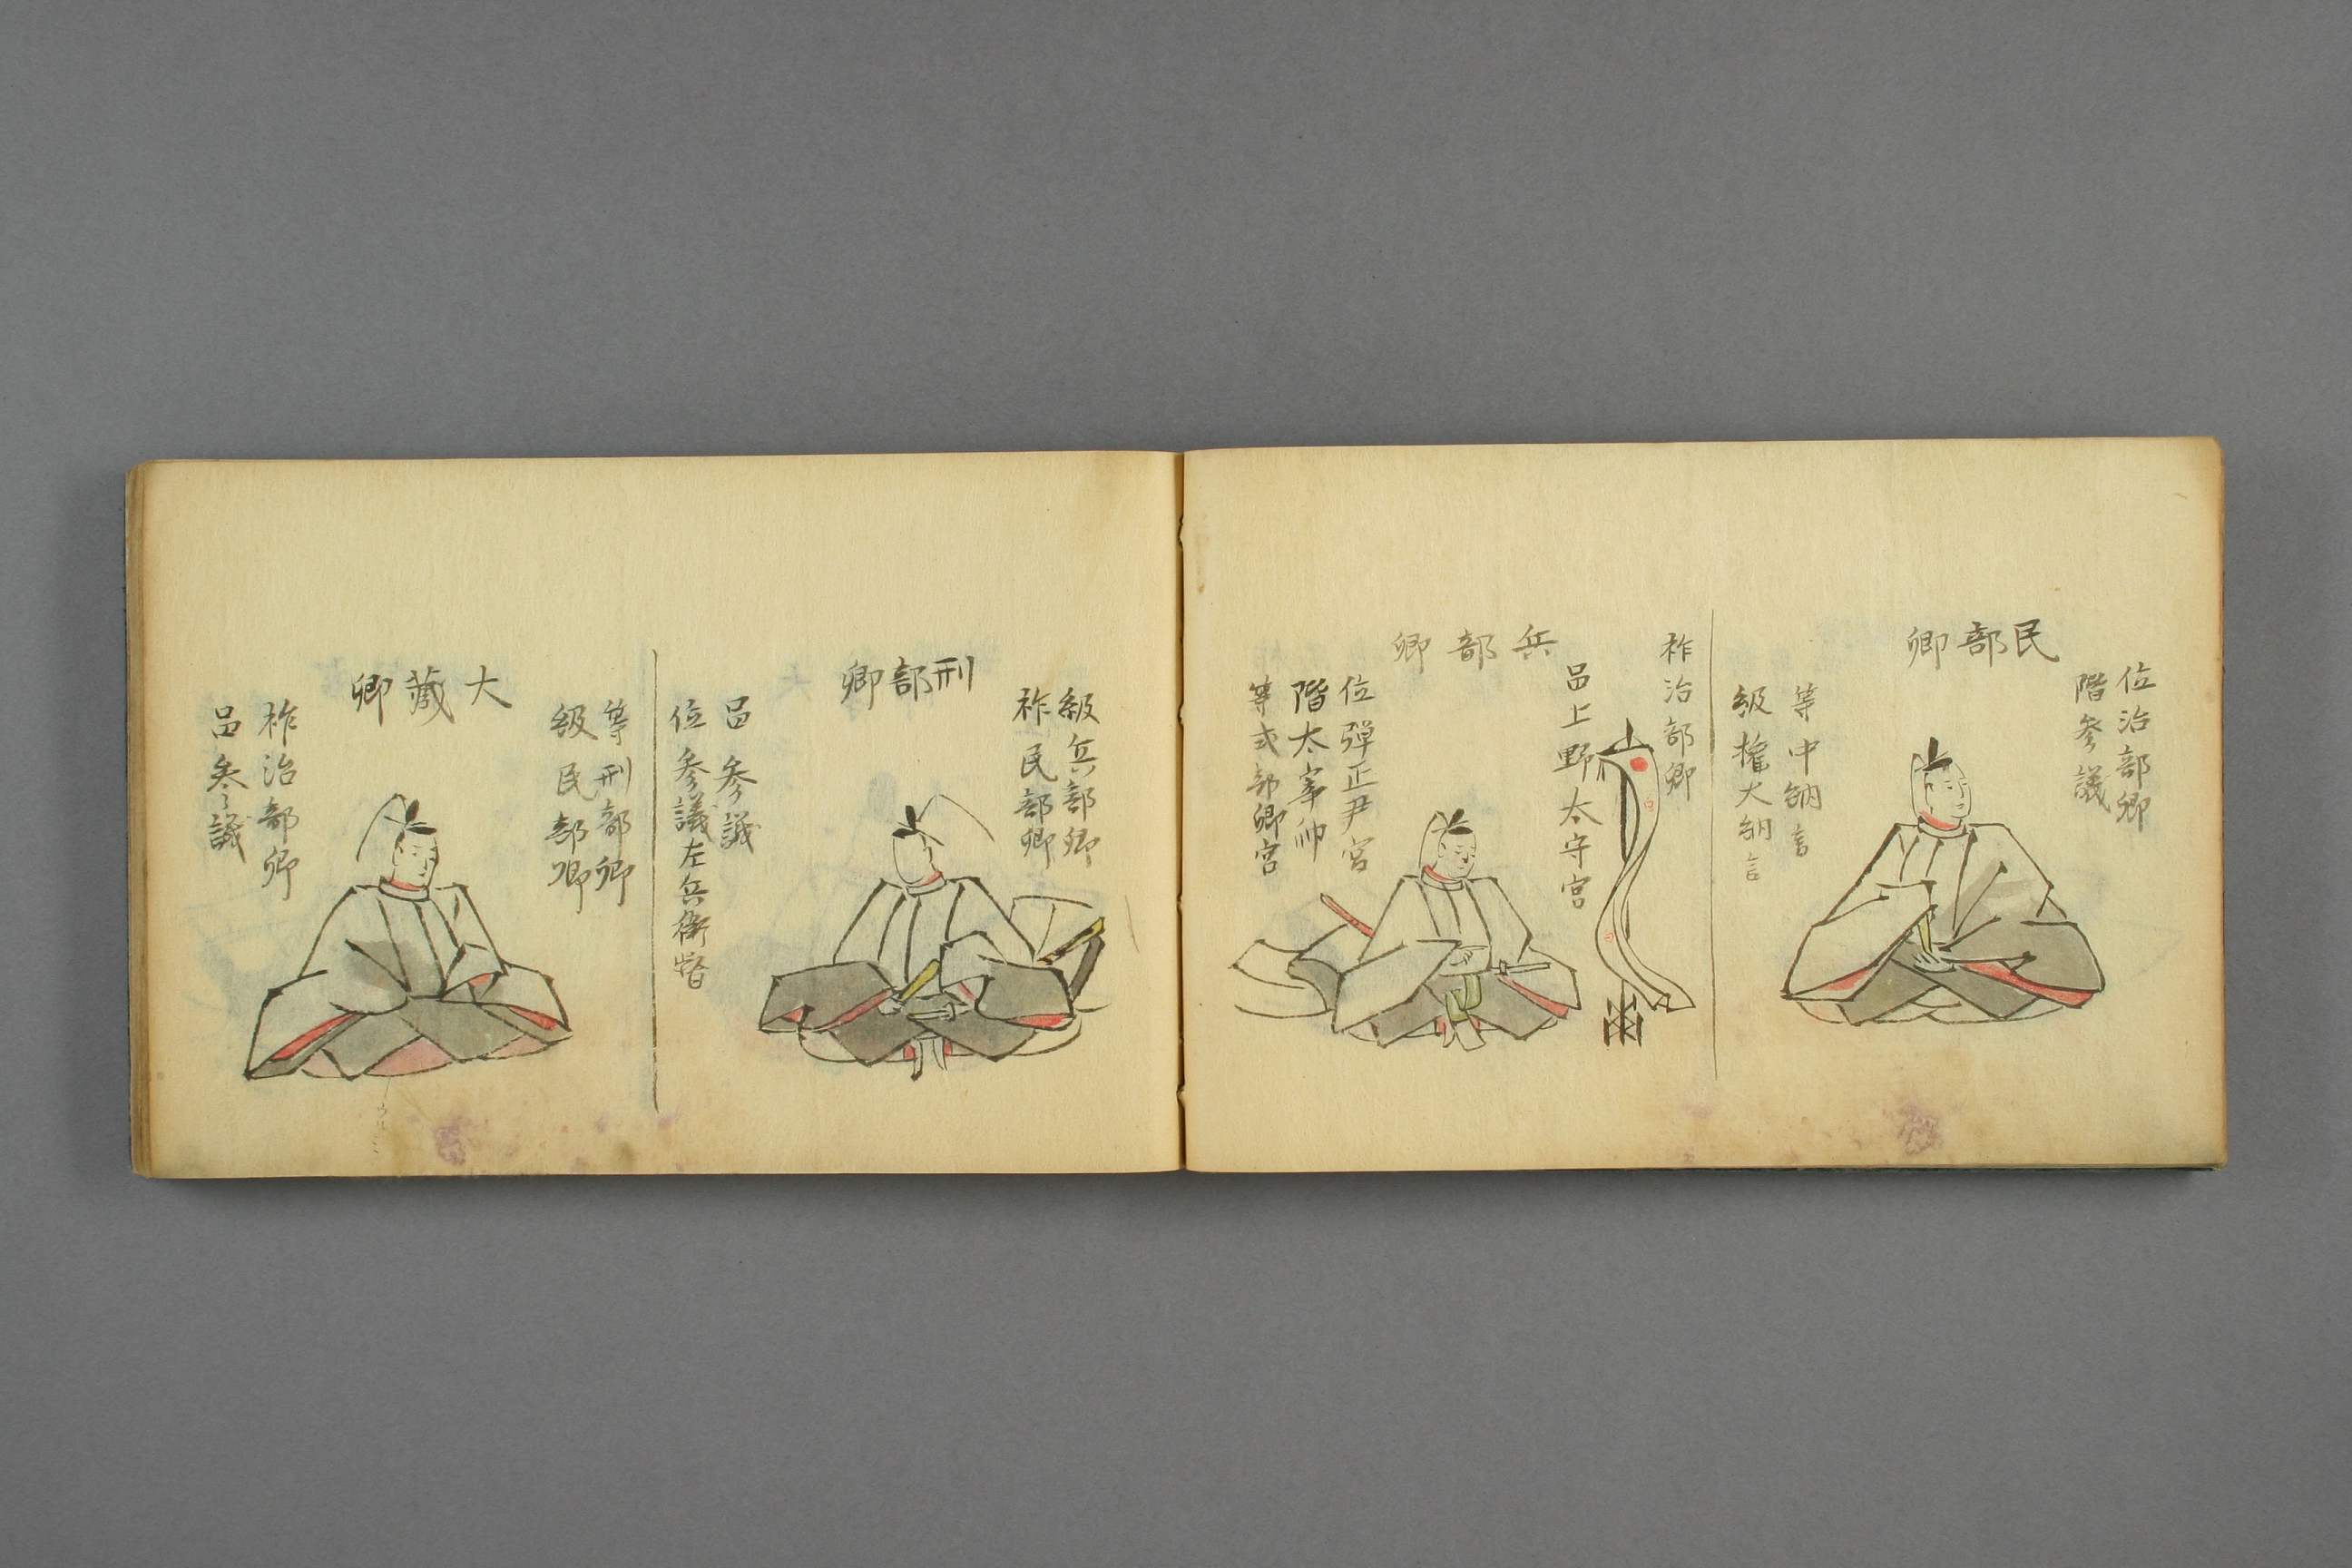 民部卿
位治部卿
階参議
等中納言
級権大納言
祚治部卿
兵部卿
呂上野太守宮
位弾正尹宮
階太宰帥
等式部卿宮
刑部卿
級兵部卿
祚民部卿
呂参議
位参議左兵衛督
大蔵卿
等刑部卿
級民部卿
祚治部卿
呂参議